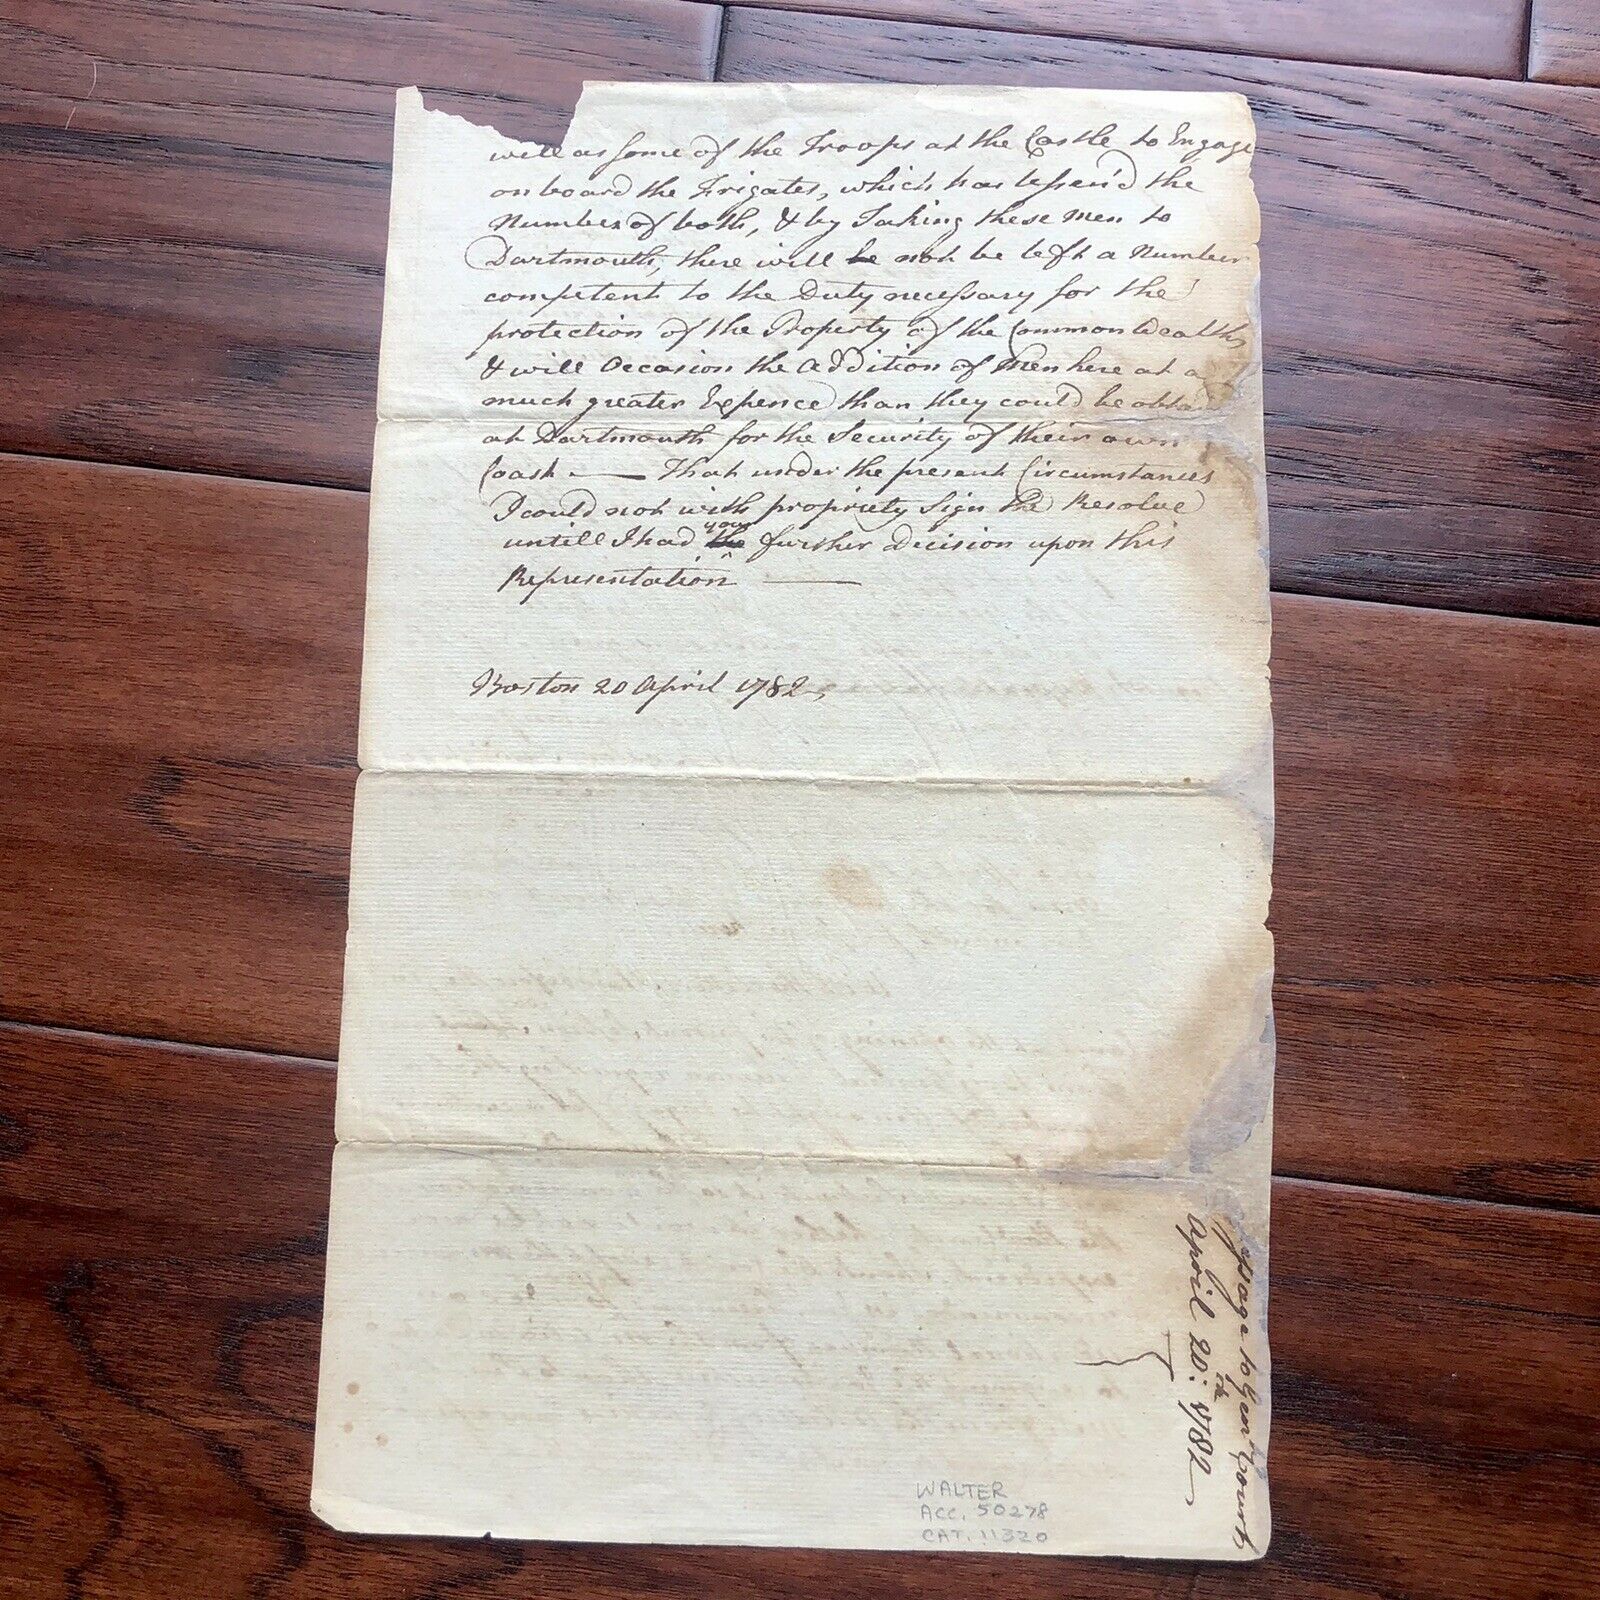 will as some of the Troops at the Castle to Engage
on board the Frigates, which has lessen'd the
Number of both, & by Taking these men to
Dartmouth, there will be not be left a Number
competent to the Duty necessary for the
protection of the Property of the CommonWealth,
& will Occasion the addition of Men here at a
much greater Expence than they could be obta
at Dartmouth for the Security of their own
Coast — That under the present Circumstances
I could not with propriety Sign the Resolve
untill I had the your further Decision upon this
Representation —
Boston 20 April 1782,
ssage to Gen Court
April 20th: 1782
WALTER
ACC. 50278
CAT. 11320